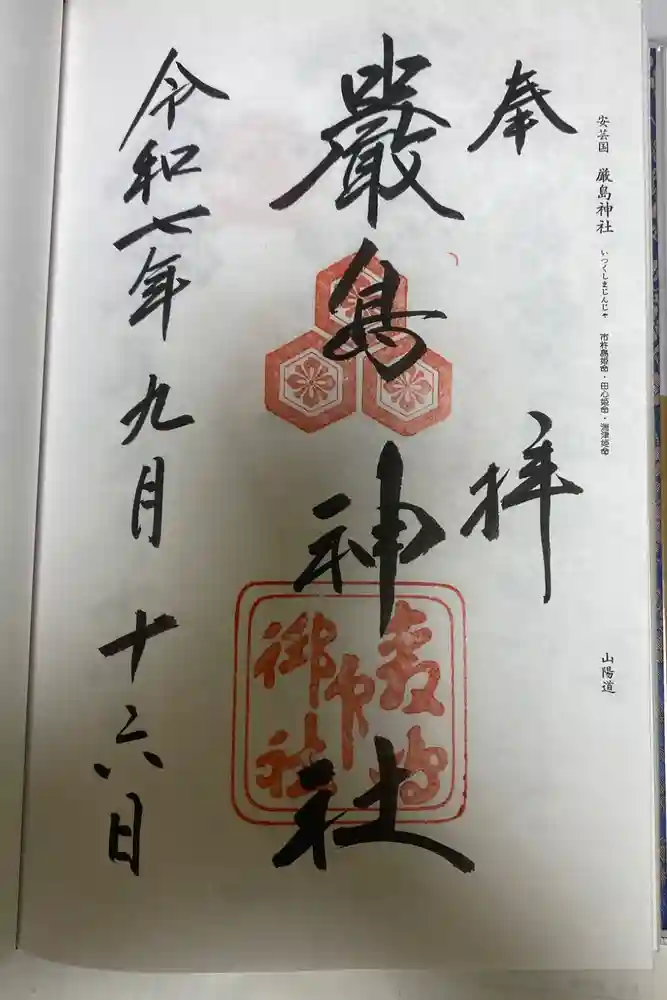 安芸国 厳島神社 いつくしまじんじゃ 市杵島姫命・田心姫命・湍津姫命
山陽道
奉拝
嚴島神社
令和七年九月十六日